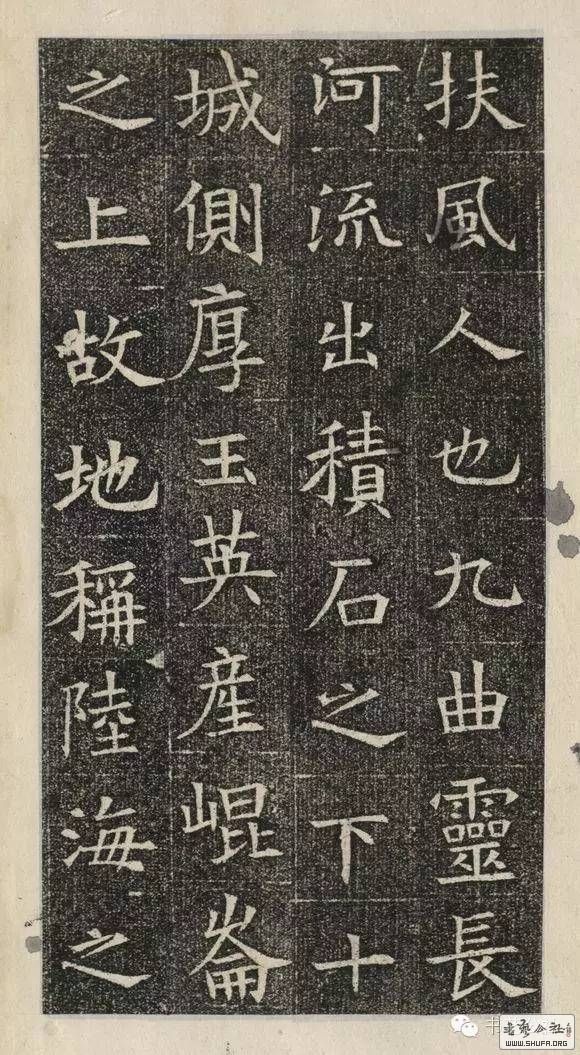 扶風人也九曲靈長
河流出積石之下十
城側厚玉英産崐崙
之上故地稱陸海之
WWW.SHUFA.ORG